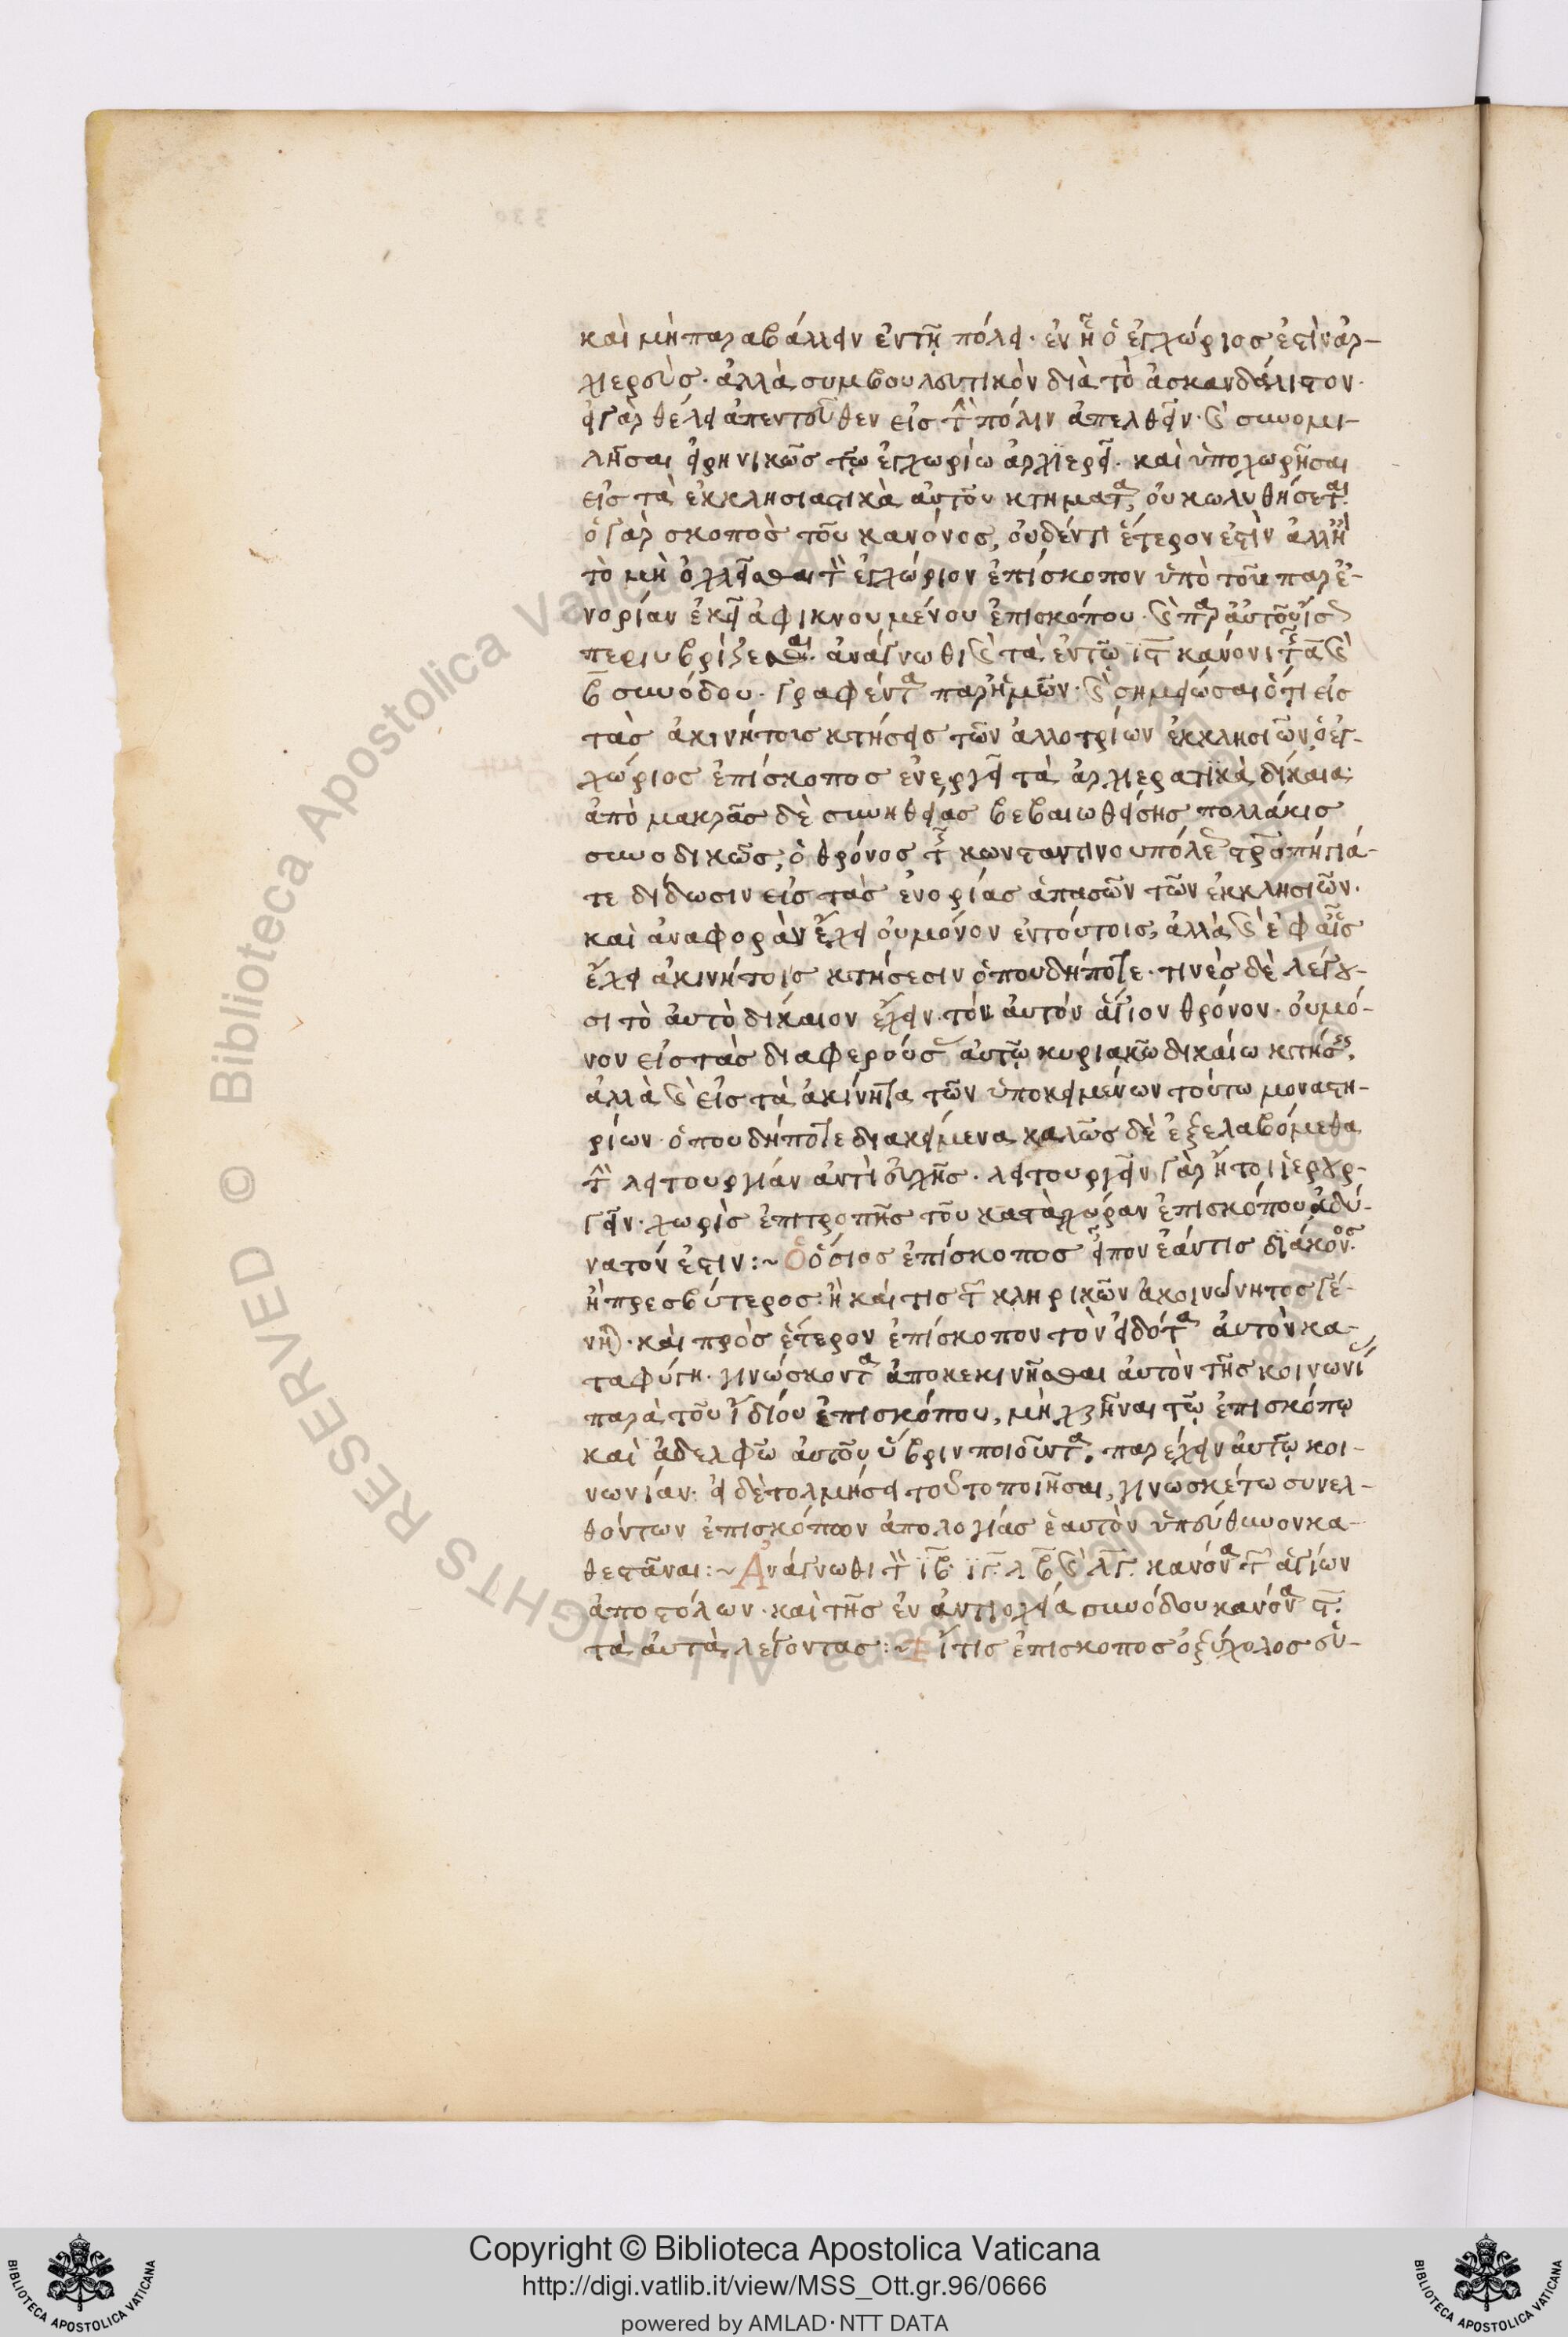 καὶ μὴ παραβάλλειν ἐν τῆ πόλει· ἐν ἧ ὁ ἐγχώριος ἐστὶν ἀρ-
χιερεὺς· ἀλλὰ συμβουλευτικὸν διὰ τὸ ἀσκανδάλιστον·
εἰ γὰρ θέλει ἀπεντεῦθεν εἰς τὴν πόλιν ἀπελθεῖν· καὶ συνομι-
λῆσαι εἰρηνικῶς τῶ ἐγχωρίω ἀρχιερεῖ· καὶ ὑποχωρῆσαι
εἰς τὰ ἐκκλησιαστικὰ αὐτοῦ κτήματα, οὐ κωλυθήσεται·
ὁ γὰρ σκοπὸς τοῦ κανόνος, οὐδέν τι ἕτερον ἐστὶν ἀλλ' ἢ
τὸ μὴ ὀχλεῖσθαι τὸν ἐγχώριον ἐπίσκοπον ὑπὸ τοῦ παρ' ἐ-
νορίαν ἐκεῖ ἀφικνουμένου ἐπισκόπου· καὶ παρ' αὐτοῦ
περιυβρίζεσθαι· ἀνάγνωθι καὶ τὰ ἐν τῶ ιϛ κανόνι τῆς α καὶ
β συνόδου· γραφέντα παρ' ἡμῶν· καὶ σημείωσαι ὅτι εἰς
τὰς ἀκινήτους κτήσεις τῶν ἀλλοτρίων ἐκκλησιῶν, ὁ ἐγ-
χώριος ἐπίσκοπος ἐνεργεῖ τὰ ἀρχιερατικὰ δίκαια·
ἀπὸ μακρᾶς δὲ συνηθείας βεβαιωθείσης πολλάκις
συνοδικῶς, ὁ θρόνος τῆς κωνσταντινουπόλεως σταυροπήγιά-
τε δίδωσιν εἰς τὰς ἐνορίας ἁπασῶν τῶν ἐκκλησιῶν·
καὶ ἀναφορὰν ἔχει οὐ μόνον ἐν τούτοις, ἀλλὰ καὶ ἐφ' αἷς
ἔχει ἀκινήτοις κτήσεσιν ὁπουδήποτε· τινὲς δὲ λέγου-
σι τὸ αὐτὸ δίκαιον ἔχειν τὸν αὐτὸν ἅγιον θρόνον· οὐ μό-
νον εἰς τὰς διαφερούσας αὐτῶ κυριακῶ δικαίω κτήσεις,
ἀλλὰ καὶ εἰς τὰ ἀκίνητα τῶν ὑποκειμένων τούτω μοναστη-
ρίων· ὁπουδήποτε διακείμενα καλῶς δὲ ἐξελαβόμεθα
τὴν λειτουργίαν ἀντὶ εὐχῆς· λειτουργεῖν γὰρ ἤτοι ἱερουρ-
γεῖν· χωρὶς ἐπιτροπῆς τοῦ κατὰ χώραν ἐπισκόπου ἀδύ-
νατόν ἐστιν :~ Ὁ ὅσιος ἐπίσκοπος εἶπον ἐάν τις διάκονος·
ἢ πρεσβύτερος· ἢ καί τις τῶν κληρικῶν ἀκοινώνητος γέ-
νηται· καὶ πρὸς ἕτερον ἐπίσκοπον τὸν εἰδότα αὐτὸν κα-
ταφύγη· γινώσκοντα ἀποκεκινῆσθαι αὐτὸν τῆς κοινωνίας
παρὰ τοῦ ἰδίου ἐπισκόπου, μὴ χρῆναι τῶ ἐπισκόπω
καὶ ἀδελφῶ αὐτοῦ ὕβριν ποιοῦντα, παρέχειν αὐτῶ κοι-
νωνίαν· εἰ δὲ τολμήσει τοῦτο ποιῆσαι, γινωσκέτω συνελ-
θόντων ἐπισκόπων ἀπολογίας ἑαυτὸν ὑπεύθυνον κα-
θεστᾶναι :~ Ἀνάγνωθι τὸν ιβ· ιγ· λβ καὶ λγ· κανόνα τῶν ἁγίων
ἀποστόλων· καὶ τῆς ἐν ἀντιοχεία συνόδου κανόνα ϛ·
τὰ αὐτὰ λέγοντας :~ Εἴ τις ἐπίσκοπος ὀξύχολος εὑ-
Copyright © Biblioteca Apostolica Vaticana
http://digi.vatlib.it/view/MSS_Ott.gr.96/0666
powered by AMLAD·NTT DATA
BIBLIOTECA APOSTOLICA VATICANA
BIBLIOTECA APOSTOLICA VATICANA